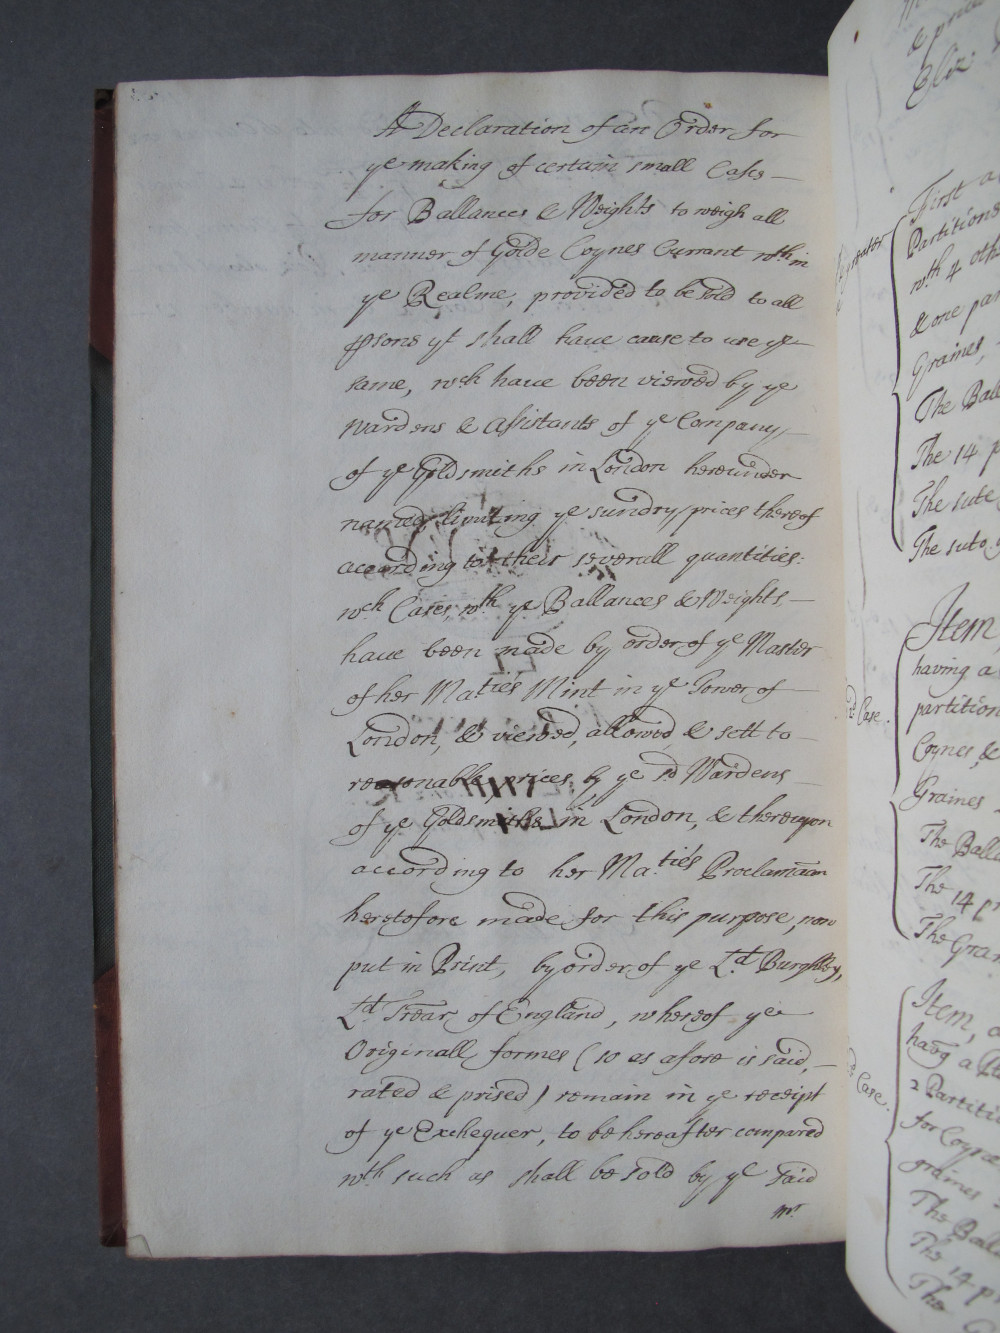 A Declaration of an Order for
ye making of certain small Cases
for Ballances & Weights to weigh all
manner of Golde Coynes Currant wthin
ye Realme, provided to be sold to all
psons yt shall have cause to use ye
same, wch have been viewed by ye
Wardens & Assistants of ye Company
of ye Goldsmiths in London hereunder
named, limiting ye sundry prices thereof
according to their severall quantities:
wch Cases, wth ye Ballances & Weights,
have been made by order of ye Master
of her Maties Mint in ye Tower of
London, & viewed, allowed & sett to
reasonable prices by ye sd Wardens
of ye Goldsmiths in London, & thereupon
according to her Ma:ties Proclamaon
heretofore made for this purpose, now
put in Print, by order of ye Ld. Burghley,
Ld. Trear of England, whereof ye
Originall formes (so as afore is said,
rated & prised) remain in ye receipt
of ye Exchequer, to be hereafter compared
wth such as shall be sold by ye said
mr.
& price
Eliz
First a
Partitions
wth 4 oth
& one par
Graines,
The Ball
The 14 p
The sute
The sute
Item,
having a
partition
Case.
Coynes, &
Graines
The Balla
The 14 pr
The Gran
Item, a
havg a P
Case.
2 Partitio
for Coyne
graines
The Balla
The 14 p
The